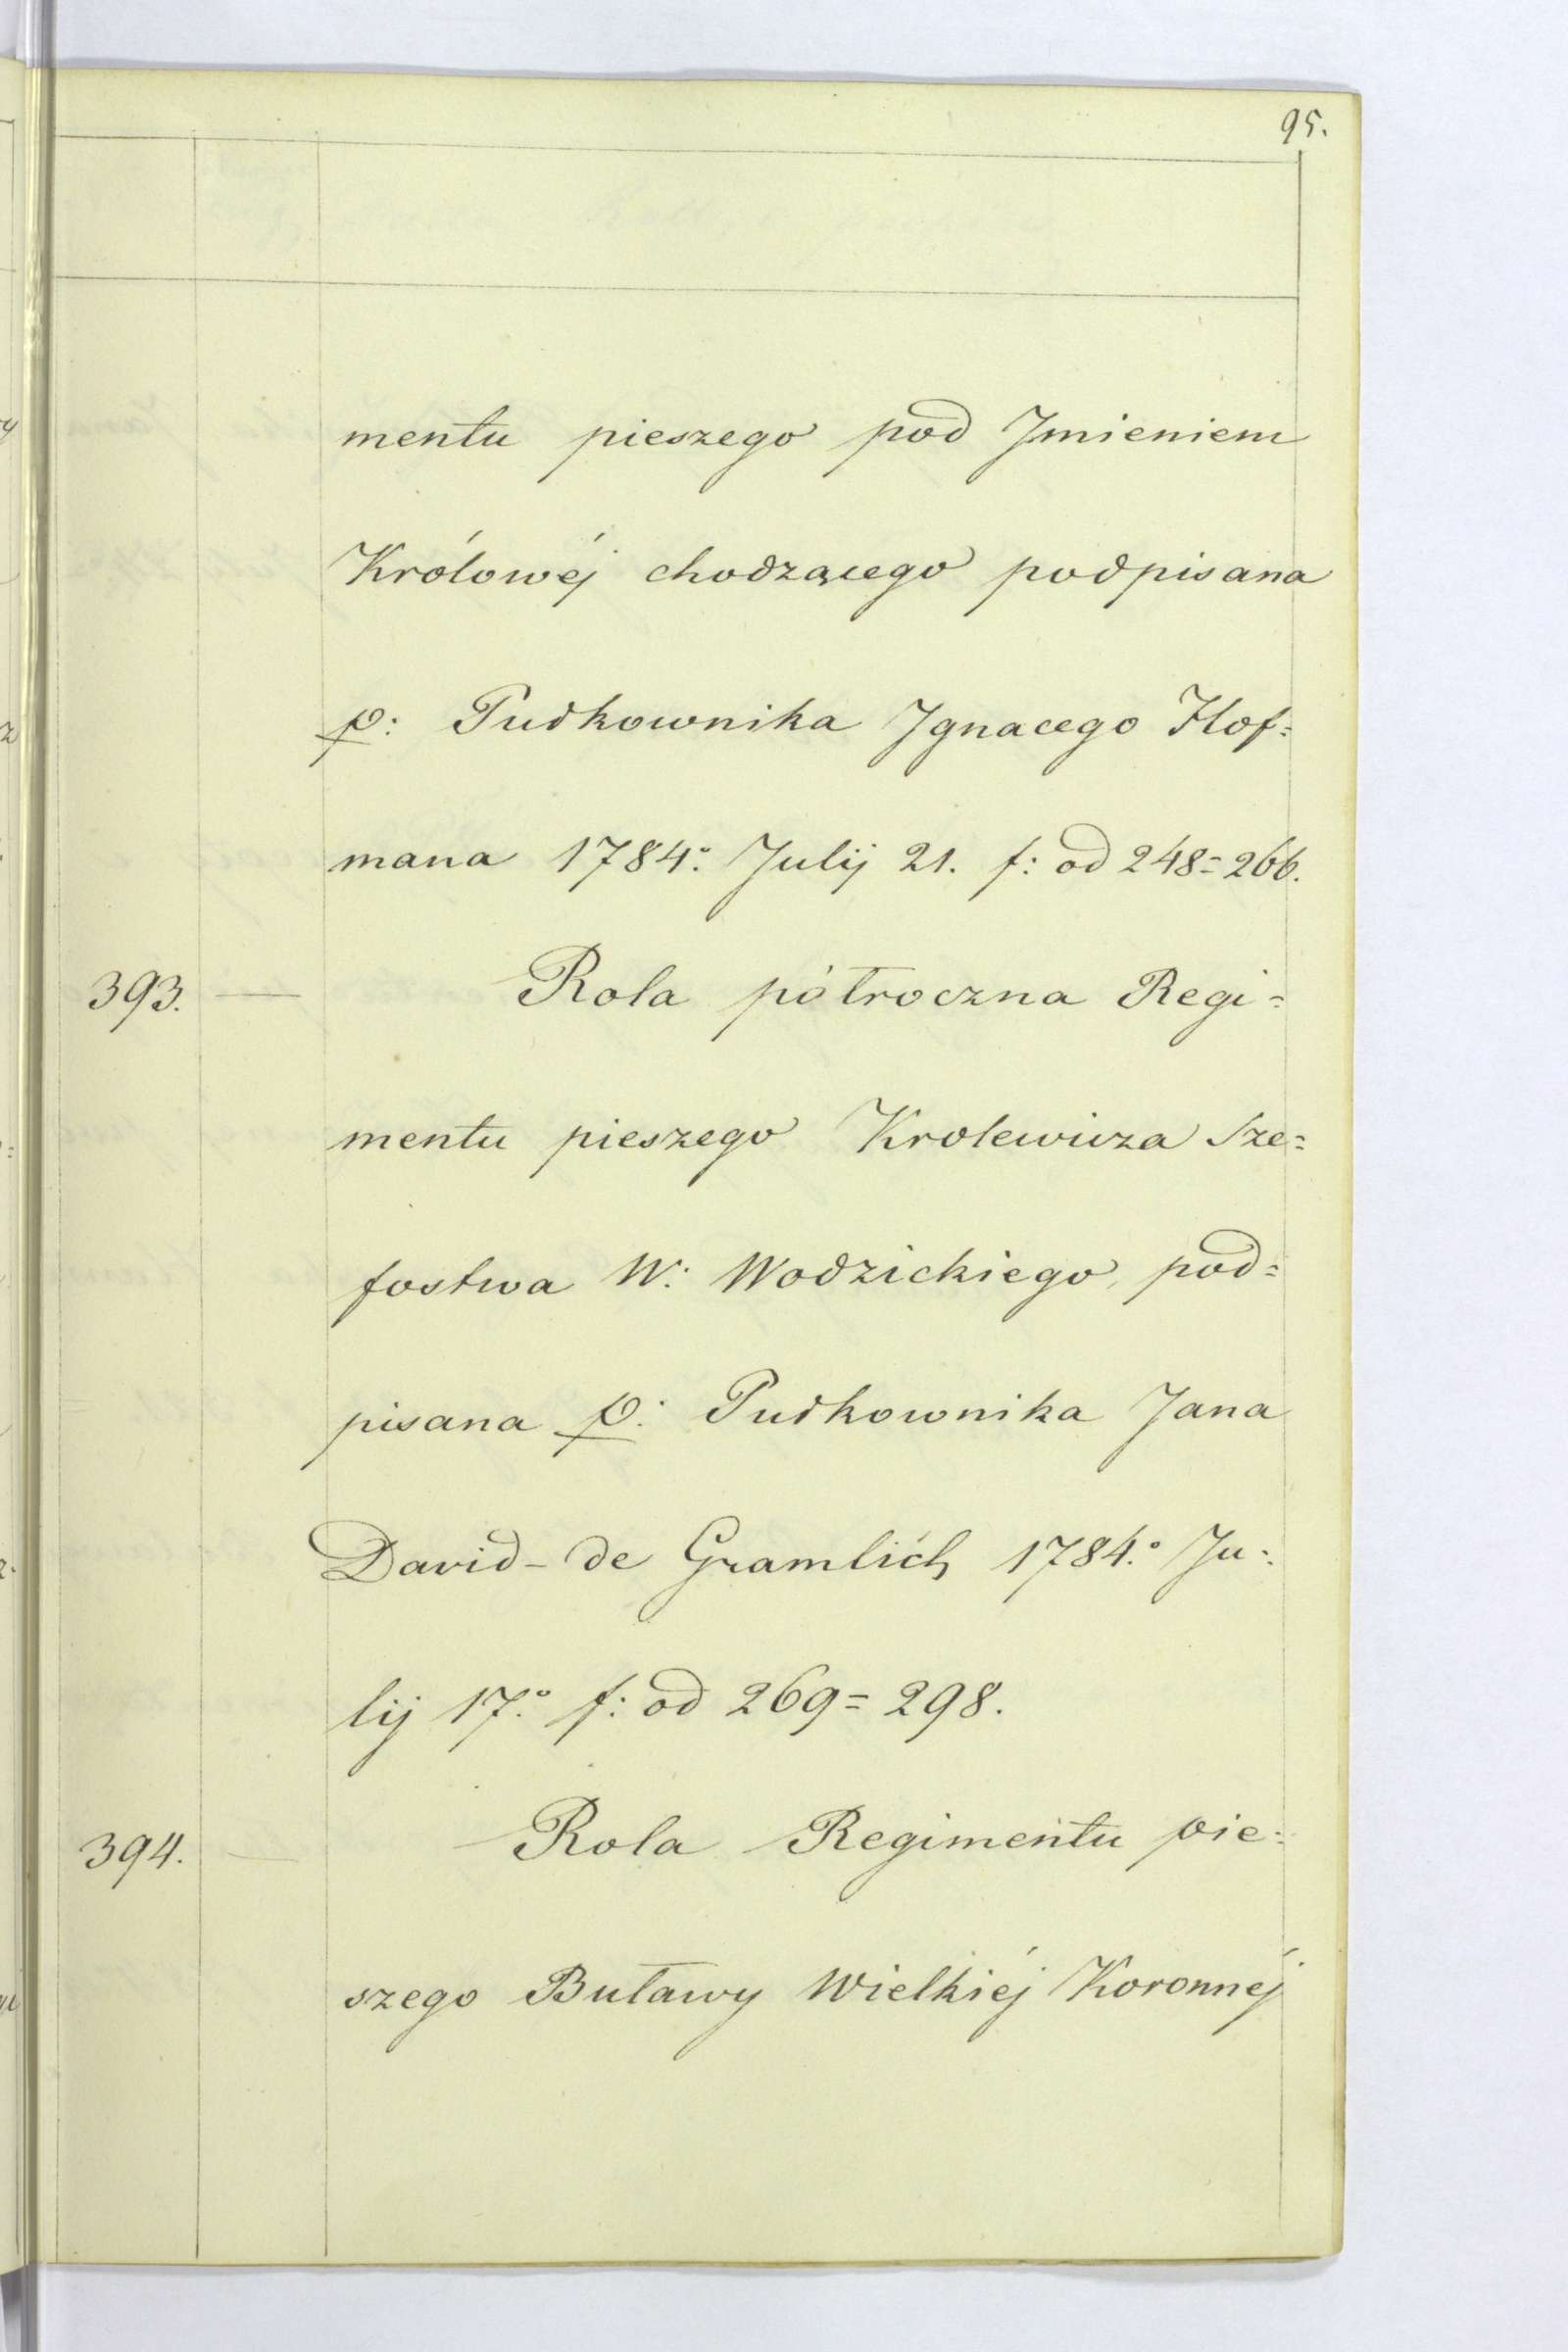 95.
mentu pieszego pod Jmieniem
Królowéj chodzącego podpisana
p: Pułkownika Jgnacego Hof=
mana 1784.° Julij 21. f: od 248=266.
393. — Rola półroczna Regi=
mentu pieszego Krolewicza Sze=
fostwa W: Wodzickiego, pod=
pisana p: Pułkownika Jana
David-de Gramlich 1784.° Ju=
lij 17.° f: od 269=298.
394. — Rola Regimentu pie=
szego Buławy Wielkiéj Koronnéj